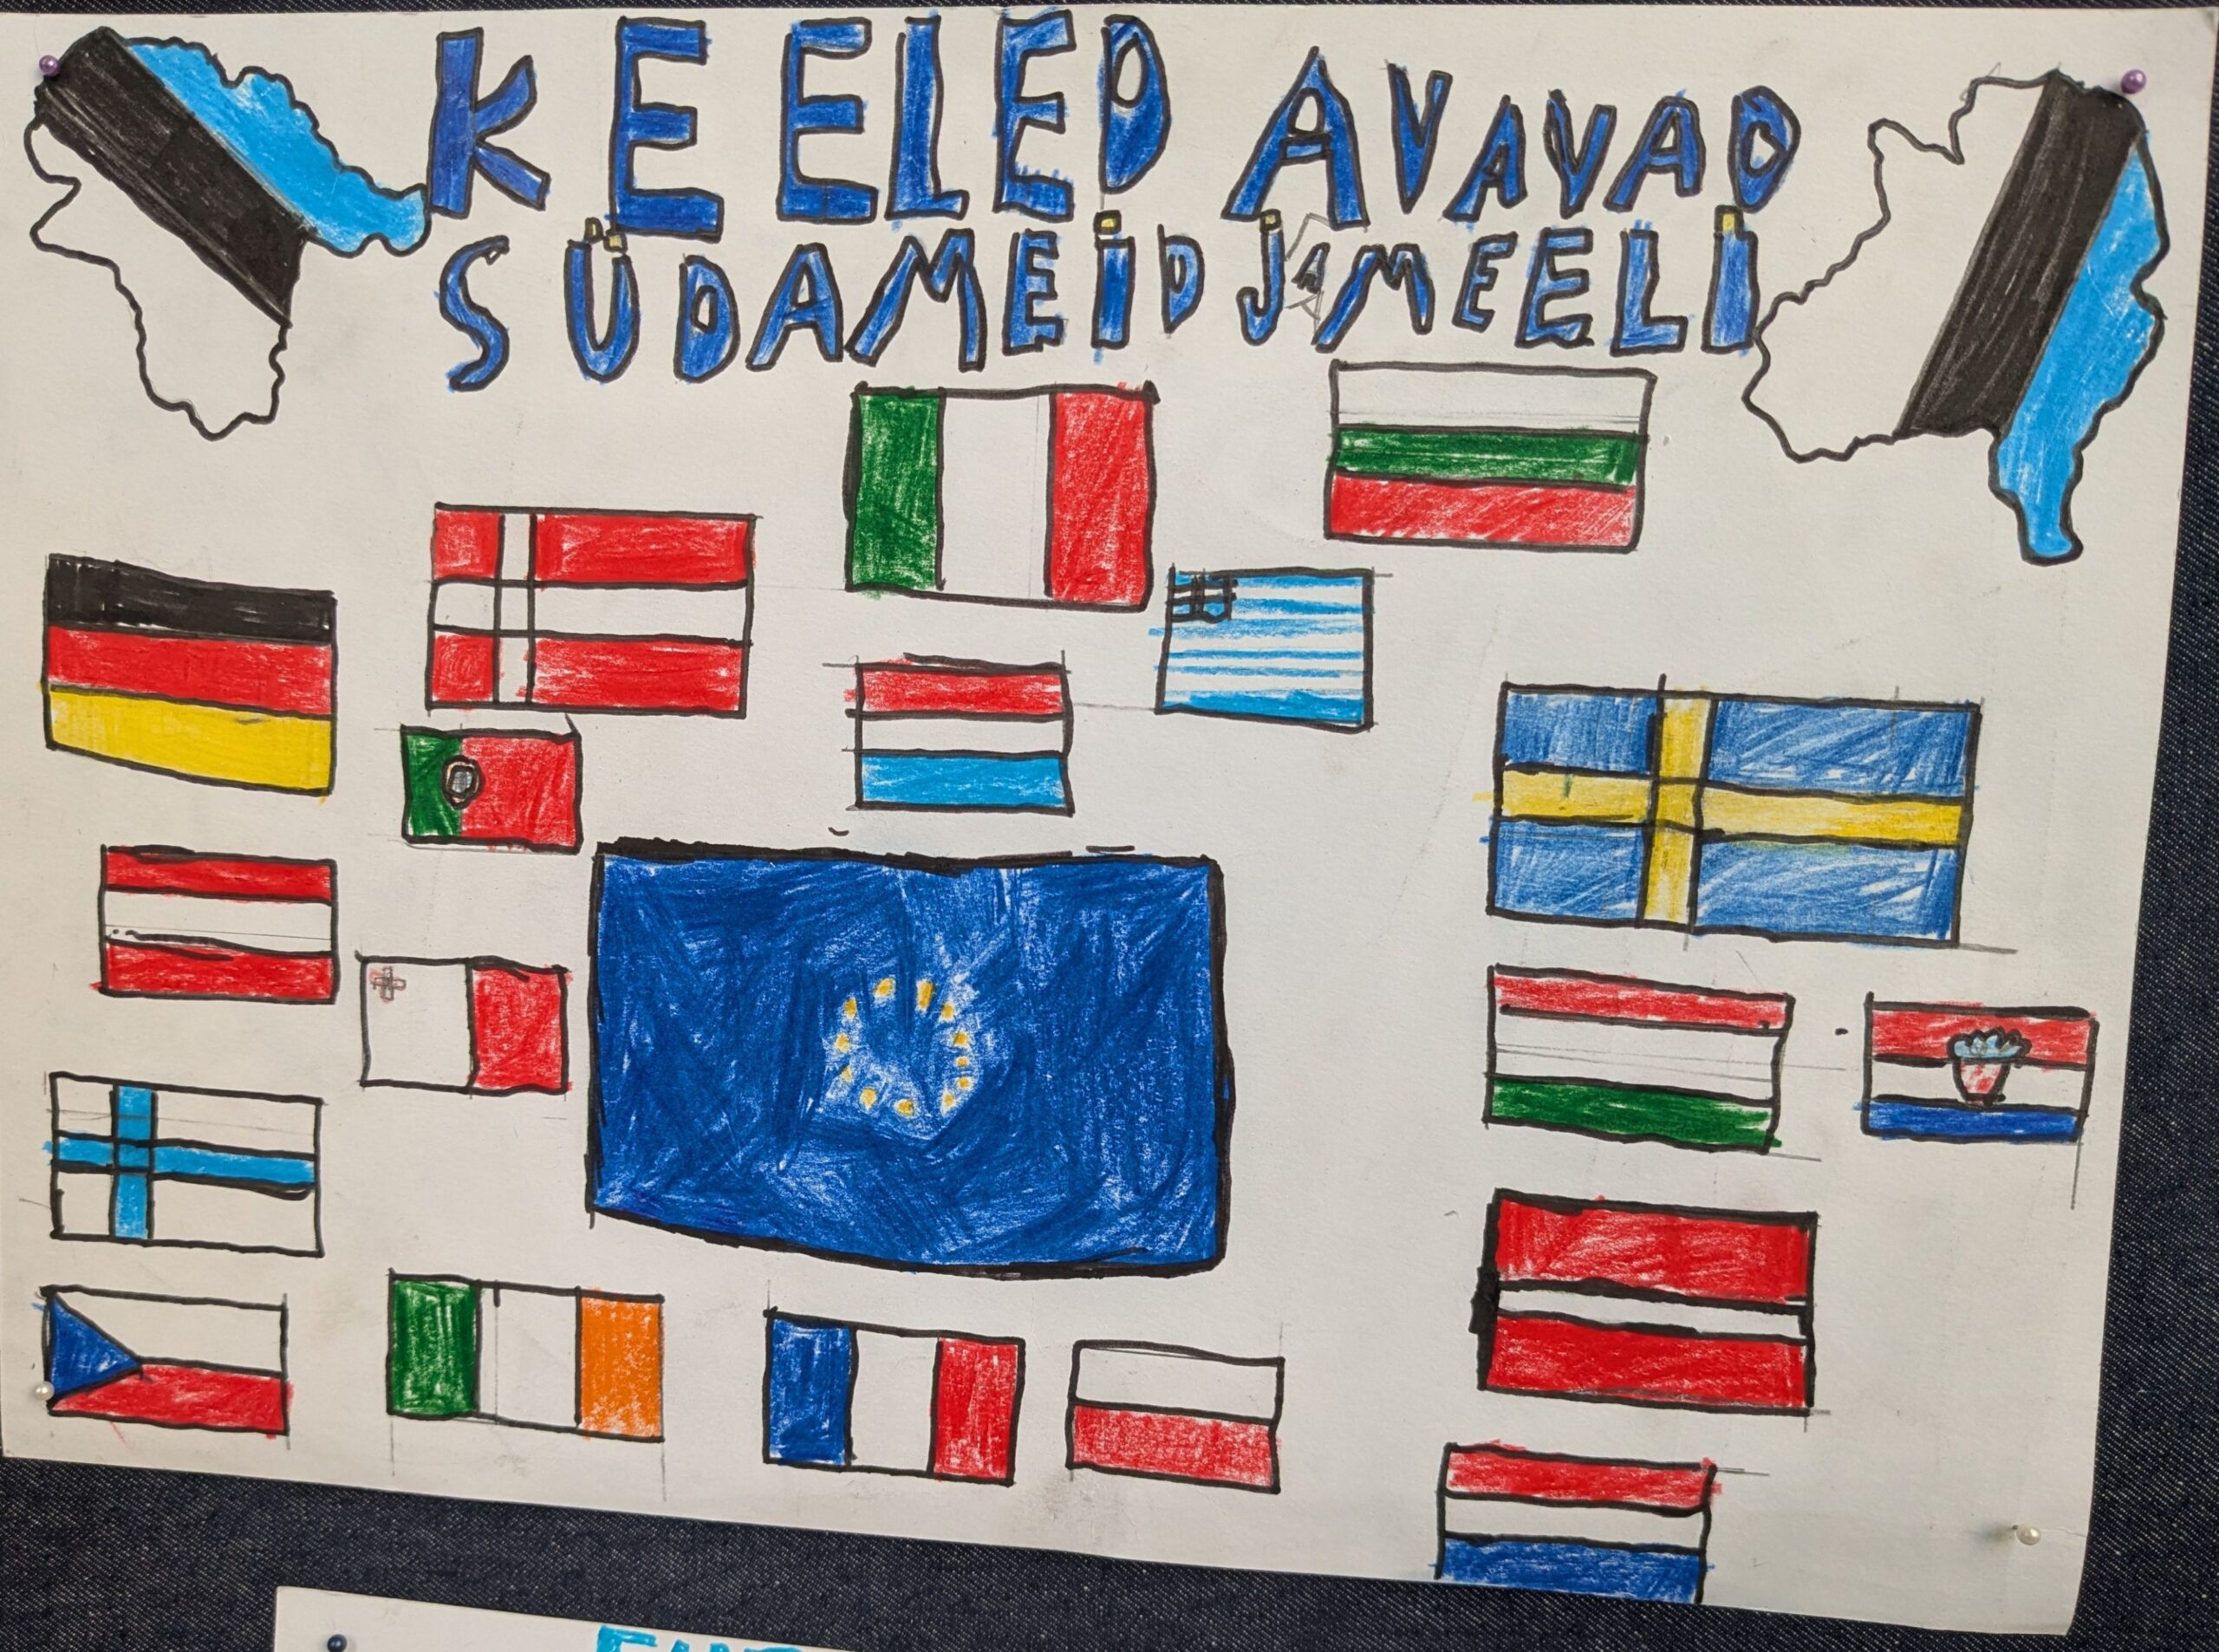 KEELED AVAVAD
SÜDAMEID JA MEELI